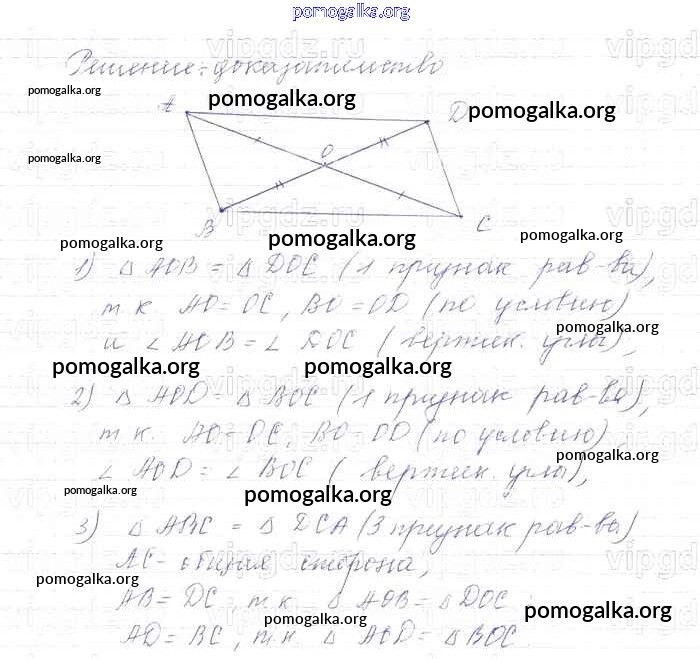 pomogalka.org
vipgdz.ru
Решение: доказательство
pomogalka.org
A
pomogalka.org
D
pomogalka.org
O
pomogalka.org
B
C
pomogalka.org
pomogalka.org
pomogalka.org
1) △ AOB = △ DOC (1 признак рав-ва),
т к. AO = OC, BO = OD (по условию)
pomogalka.org
и ∠ AOB = ∠ DOC (вертик. углы),
pomogalka.org
pomogalka.org
2) △ AOD = △ BOC (1 признак рав-ва),
т к. AO = OC, BO = OD (по условию)
pomogalka.org
∠ AOD = ∠ BOC (вертик. углы),
pomogalka.org
pomogalka.org
3) △ ABC = △ DCA (3 признак рав-ва)
AC - общая сторона,
pomogalka.org
AB = DC, т.к. △ AOB = △ DOC
pomogalka.org
pomogalka.org
AD = BC, т.к. △ AOD = △ BOC.